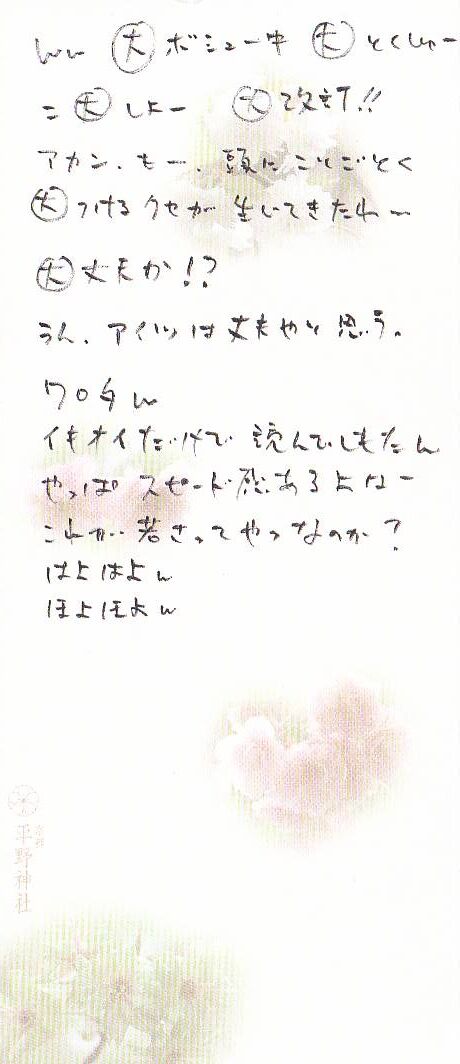 ww ㊛ ボシュー中 ㊛ とくしゅー
こ㊛しよー ㊛改訂!!
アカン、もー、頭にことごとく
㊛つけるクセが生じてきたわー
㊛丈夫か!?
うん、アイツは丈夫やと思う。
ワロタw
イキオイだけで読んでしもたw
やっぱスピード感あるよなー
これが若さってやつなのか?
はよはよw
ほよほよw
京都
平野神社